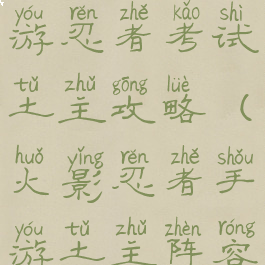 yóu rěn zhě kǎo shì
游忍者考试
tǔ zhǔ gōng lüè
土主攻略（
huǒ yǐng rěn zhě shǒu
火影忍者手
yóu tǔ zhǔ zhèn róng
游土主阵容